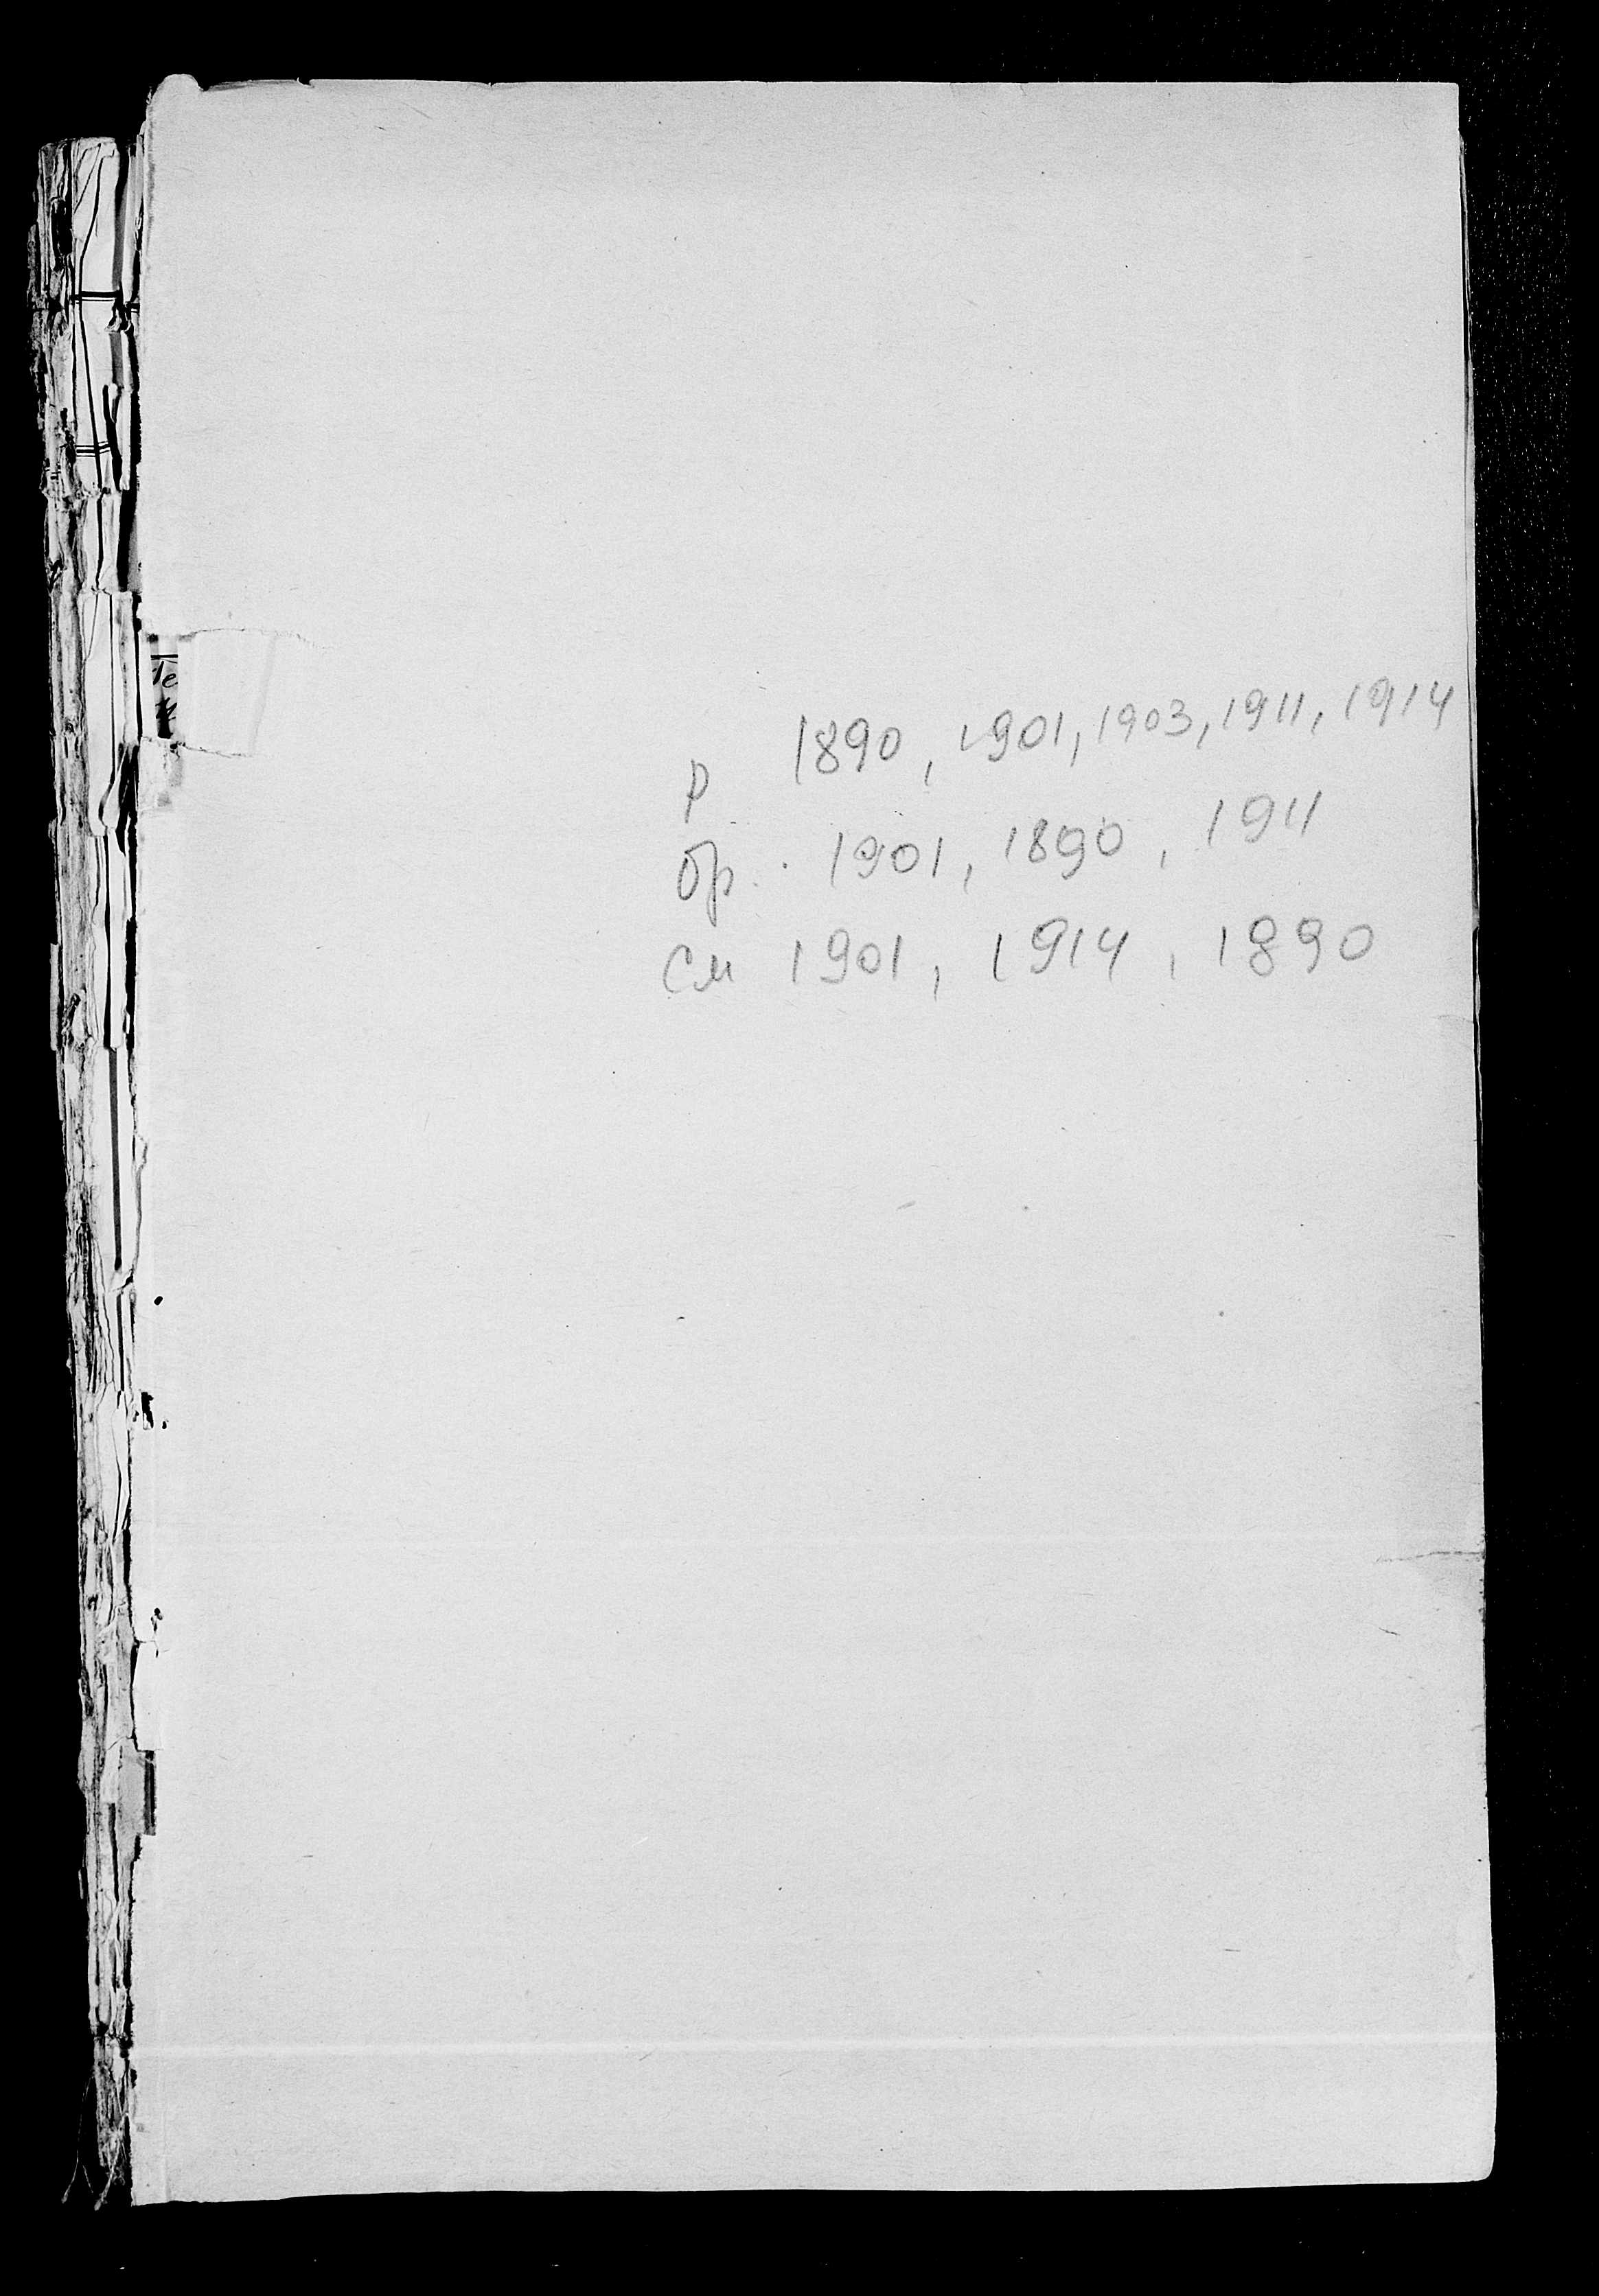 р 1890, 1901, 1903, 1911, 1914
бр. 1901, 1890, 1911
см 1901, 1914, 1890